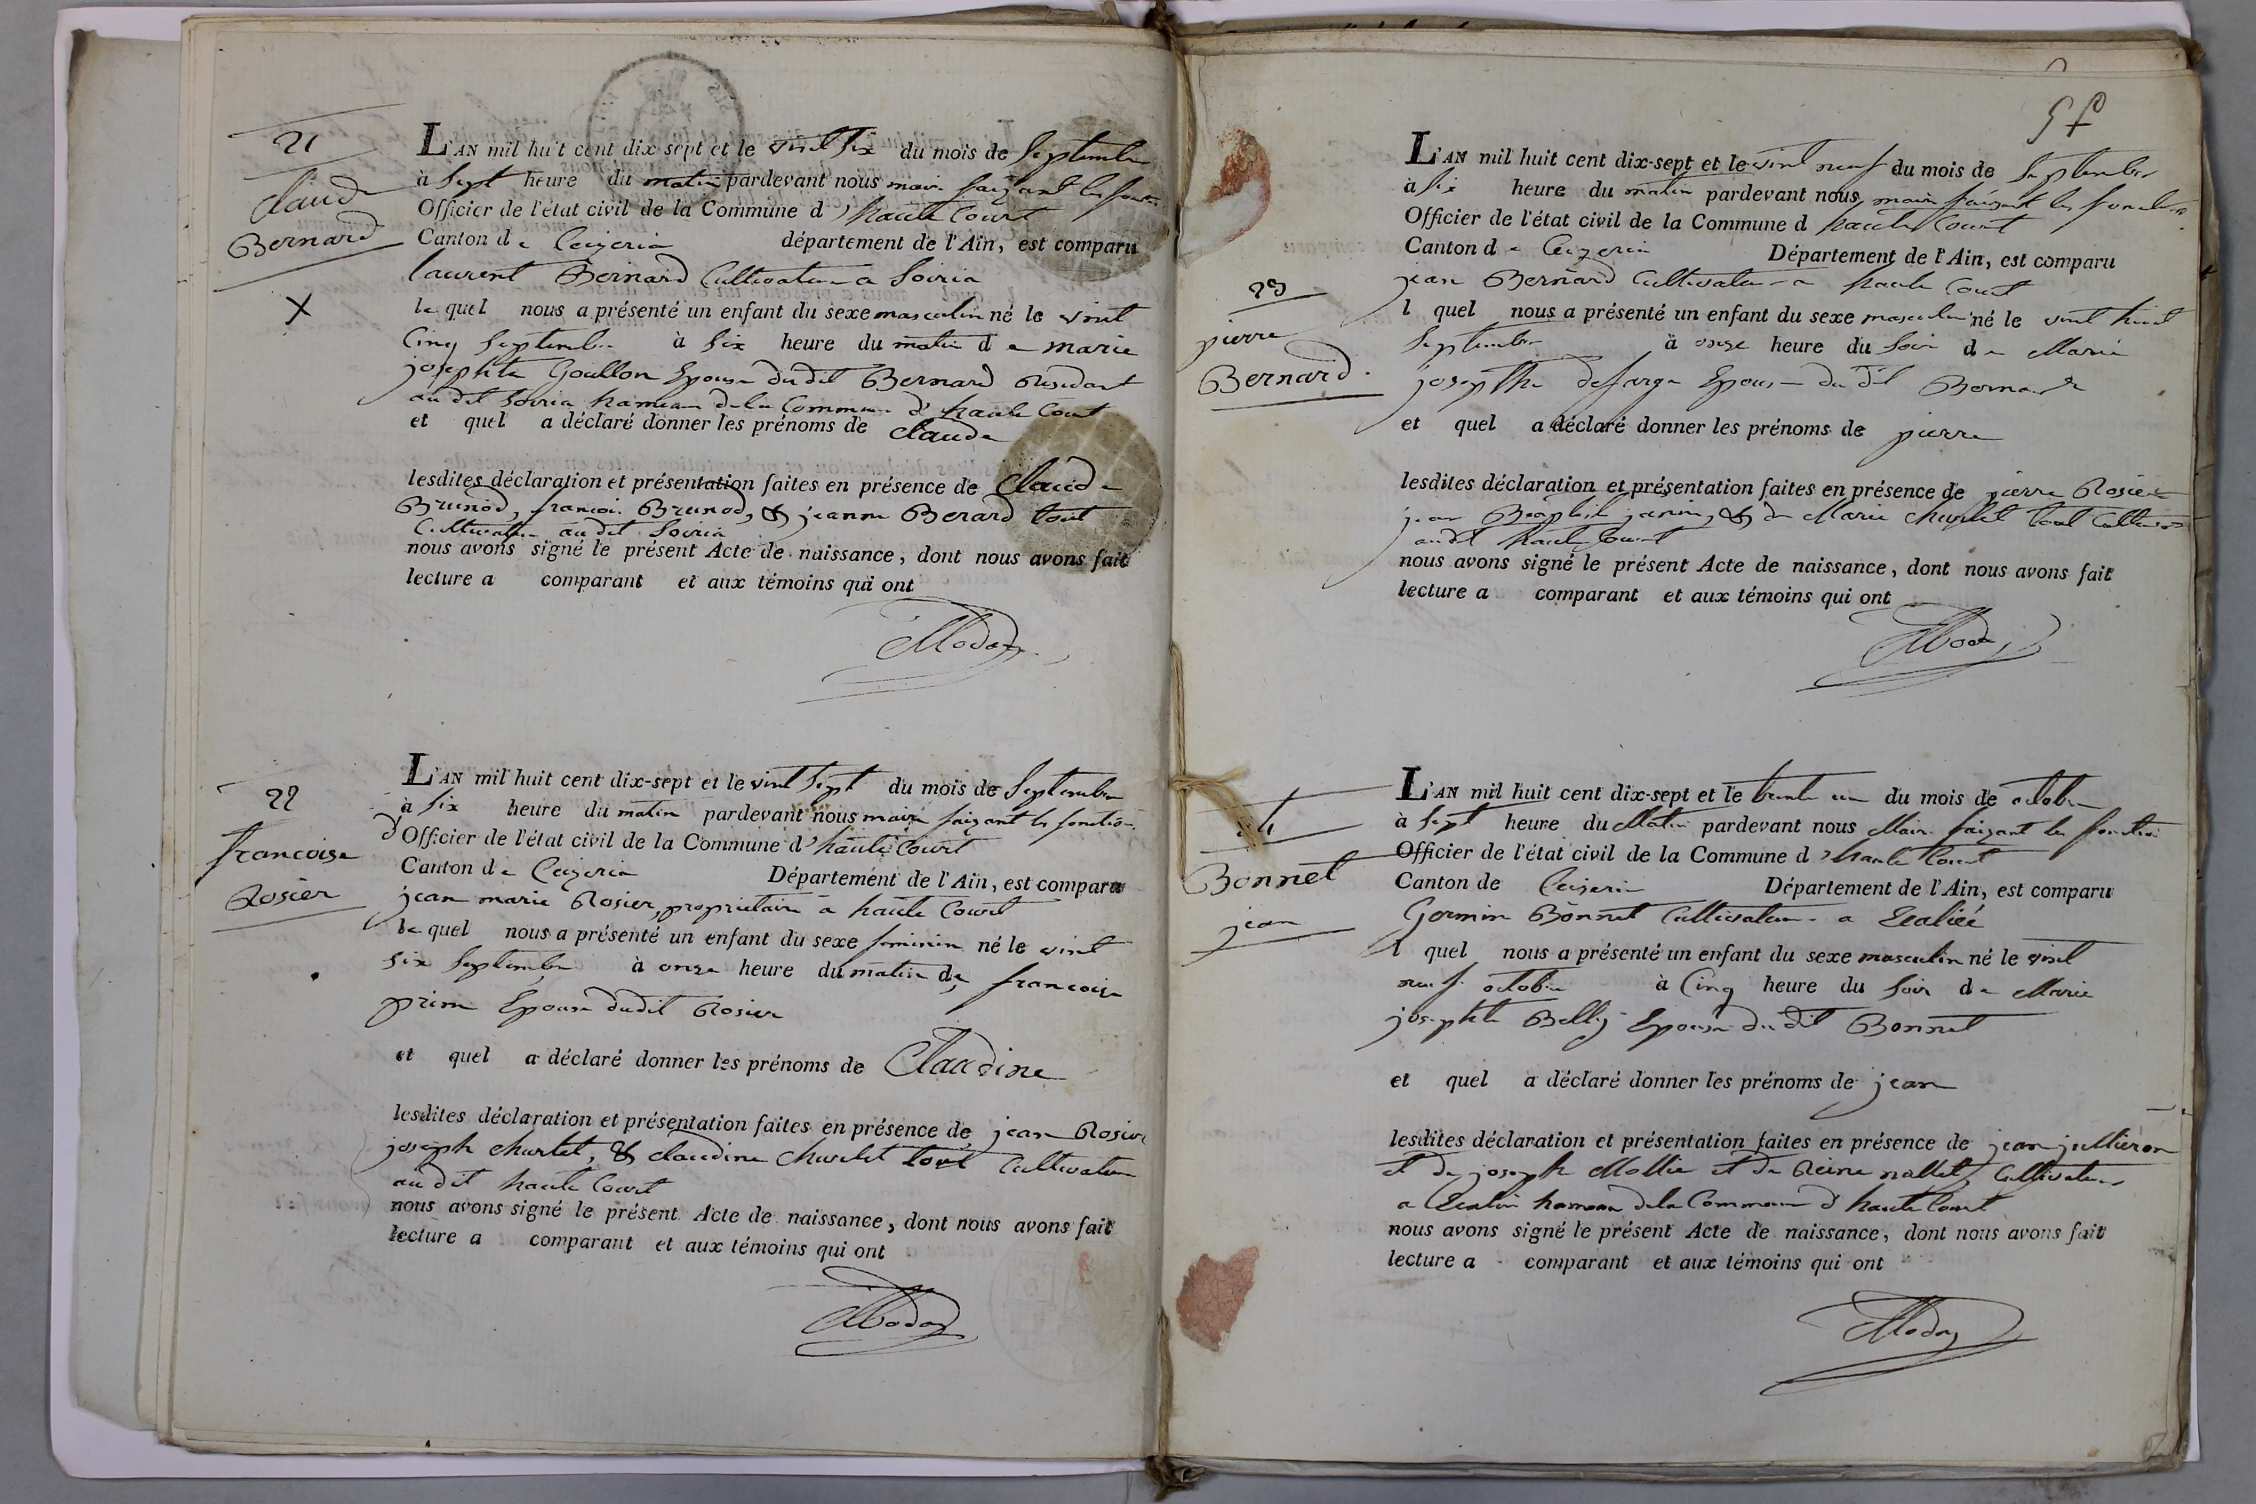 21
Claude
Bernard
X
L'AN mil huit cent dix-sept et le vint six du mois de Septembre
à Sept heure du matin pardevant nous maire faizant les fonct
Officier de l'état civil de la Commune d'haute Court
Canton de Ceizeria département de l'Ain, est comparu
laurent Bernard Cultivateur a Soiria
le quel nous a présenté un enfant du sexe masculin né le vint
Cinq Septembre à Six heure du matin de marie
josephte Goullon Epouse dudit Bernard Résidant
au dit Soiria hameau dela Commune d'haute Court
et quel a déclaré donner les prénoms de Claude
lesdites déclaration et présentation faites en présence de Claude
Brunod, francois Brunod, & jeanne Berard tout
Cultivateur au dit Soiria
nous avons signé le présent Acte de naissance, dont nous avons fait
lecture a comparant et aux témoins qui ont
22
francoise
Rosier
L'AN mil huit cent dix-sept et le vint Sept du mois de Septembre
à Six heure du matin pardevant nous maire faizant les fonction
d'Officier de l'état civil de la Commune d'haute Court
Canton de Ceizeria Département de l'Ain, est comparu
jean marie Rosier, proprietaire a haute Court
le quel nous a présenté un enfant du sexe feminin né le vint
six Septembre à onze heure du matin de francoise
prim Epouse dudit Rosier
et quel a déclaré donner les prénoms de Claudine
lesdites déclaration et présentation faites en présence de jean Rosier
joseph churlet, & claudine churlet tout Cultivateur
au dit haute Court
nous avons signé le présent Acte de naissance, dont nous avons fait
lecture a comparant et aux témoins qui ont
23
pierre
Bernard.
L'AN mil huit cent dix-sept et le vint neuf du mois de Septembre
à Six heure du matin pardevant nous maire faizant les fonction
Officier de l'état civil de la Commune d haute Court
Canton de Ceizeria Département de l'Ain, est comparu
jean Bernard Cultivateur a haute Court
l quel nous a présenté un enfant du sexe masculin né le vint huit
Septembre à onze heure du Soir de Marie
josepthe defarge Epouse du dit Bernard
et quel a déclaré donner les prénoms de pierre
lesdites déclaration et présentation faites en présence de pierre Rosier
jean Baptist janin, & de Marie churlet tout Cultivateur
audit haute Court
nous avons signé le présent Acte de naissance, dont nous avons fait
lecture a comparant et aux témoins qui ont
24
Bonnet
jean
L'AN mil huit cent dix-sept et le trente un du mois de octobre
à Sept heure du Matin pardevant nous Maire faizant les fonction
Officier de l'état civil de la Commune d'haute Court
Canton de Ceizeria Département de l'Ain, est comparu
Germin Bonnet Cultivateur a
l quel nous a présenté un enfant du sexe masculin né le vint
neuf octobre à Cinq heure du Soir de Marie
josephte Belly Epouse du dit Bonnet
et quel a déclaré donner les prénoms de jean
lesdites déclaration et présentation faites en présence de jean jullieron
et de joseph Mollie et de Reine nallet, Cultivateur
a hameau dela Commune d'haute Court
nous avons signé le présent Acte de naissance, dont nous avons fait
lecture a comparant et aux témoins qui ont